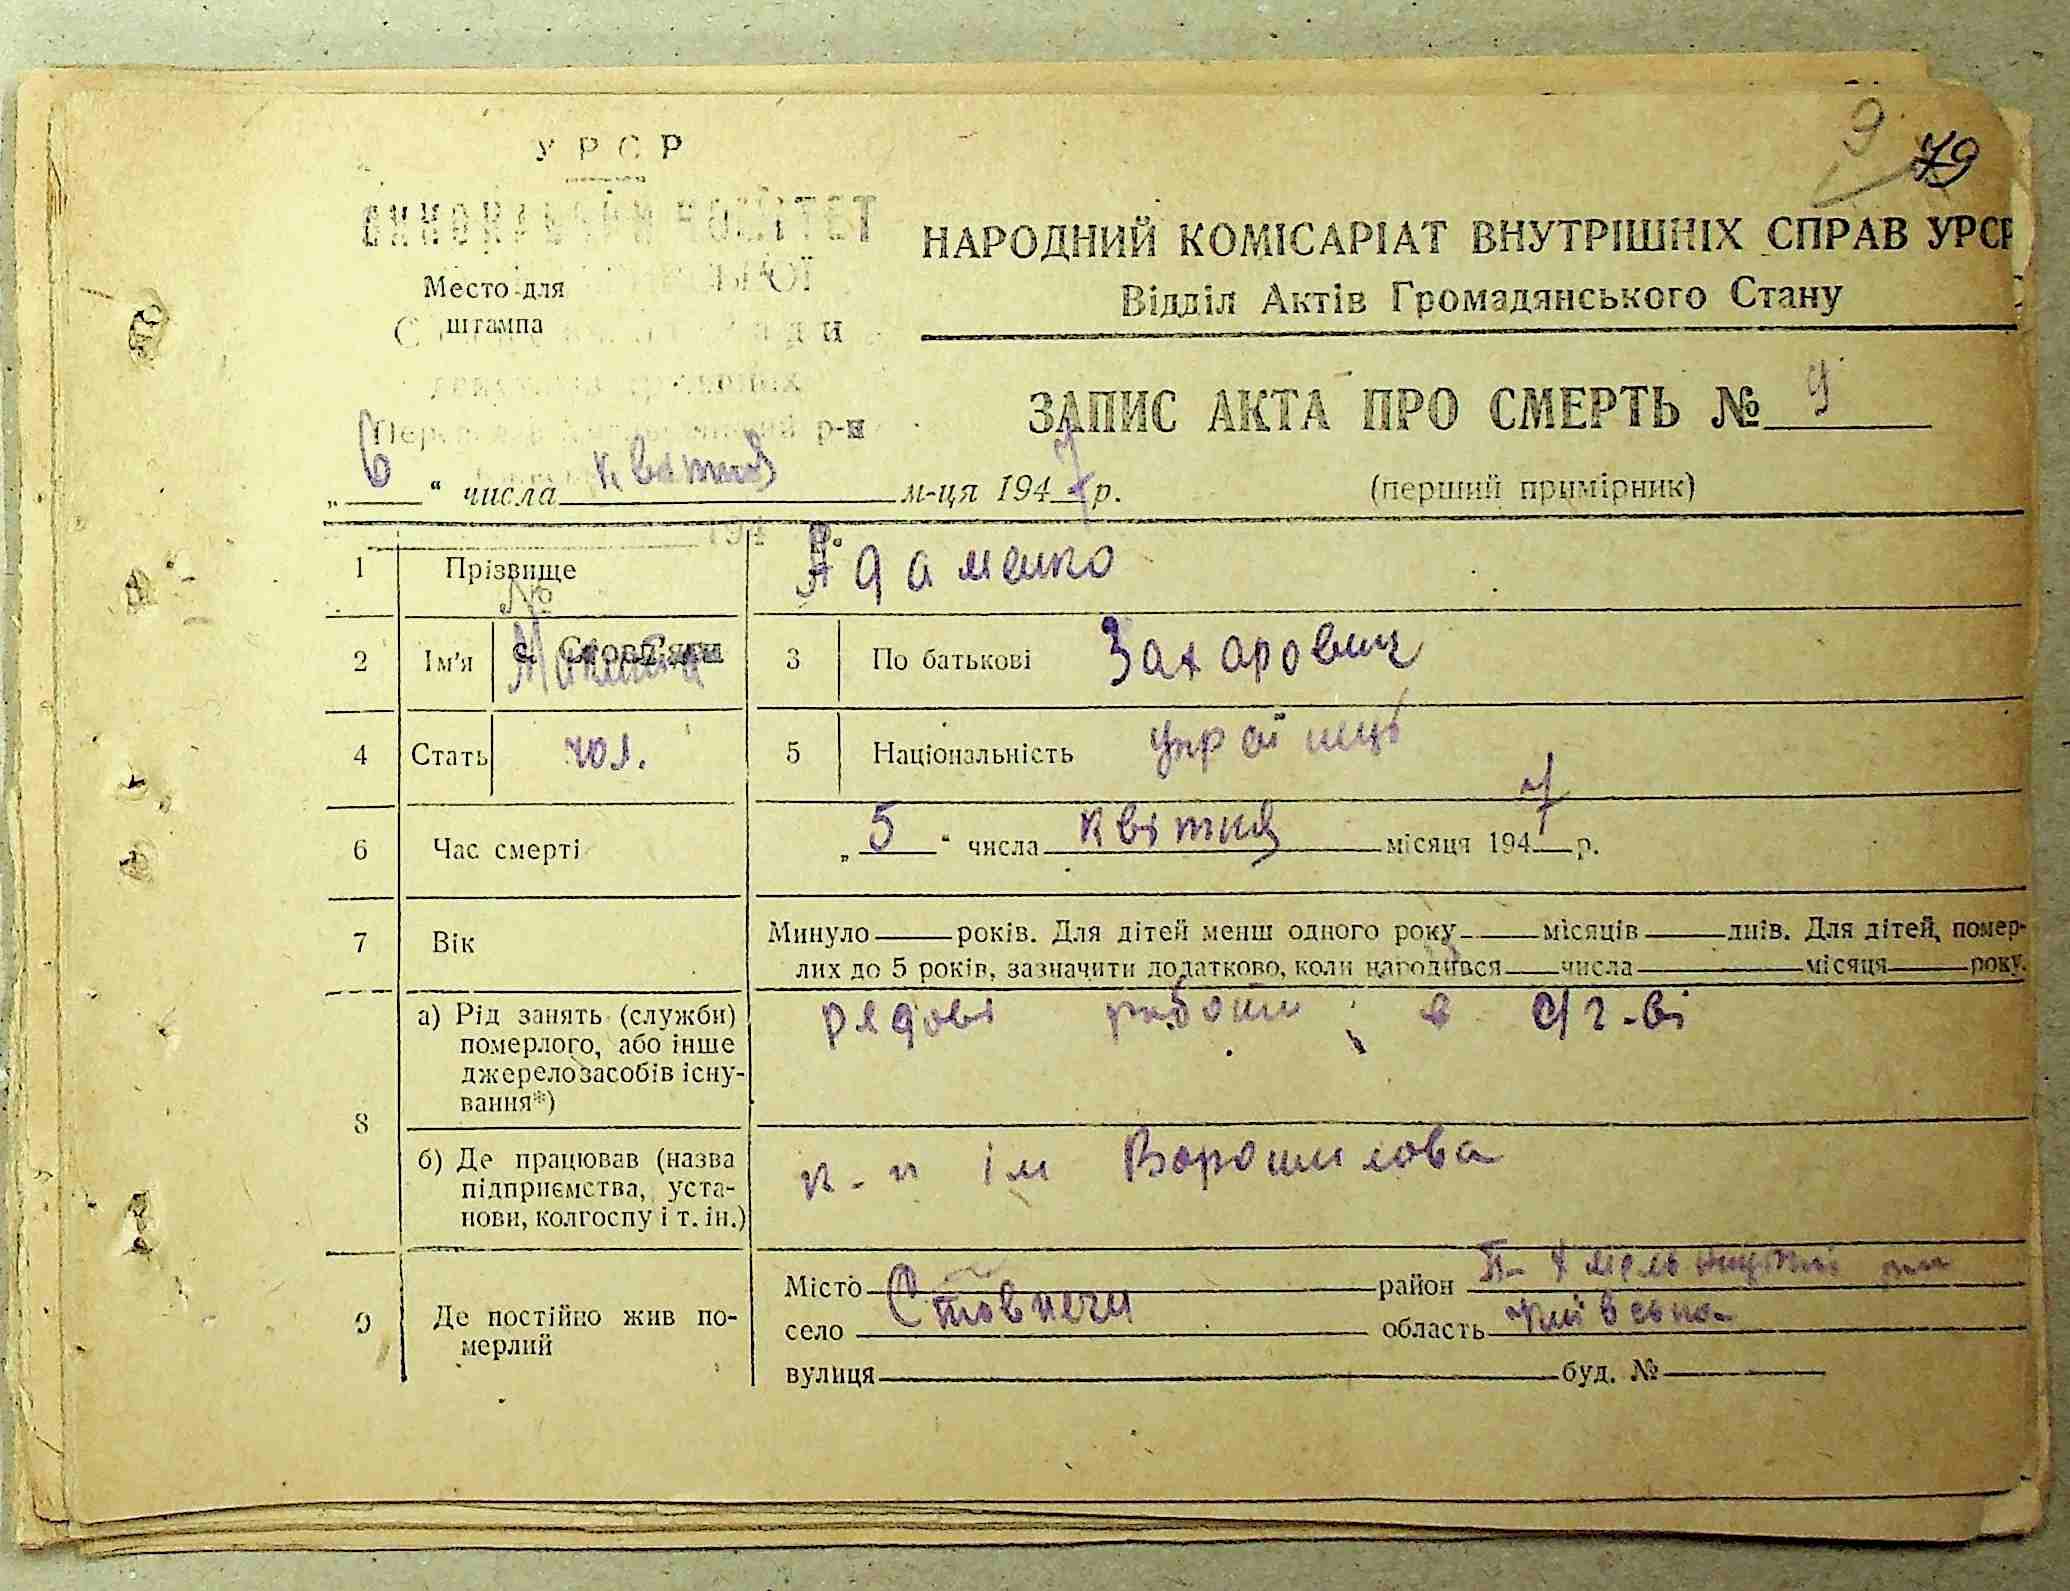 9
79
УРСР
ВИКОНАВЧИЙ КОМІТЕТ
Место для
штампа
р-н
НАРОДНИЙ КОМІСАРІАТ ВНУТРІШНІХ СПРАВ УРСР
Відділ Актів Громадянського Стану
ЗАПИС АКТА ПРО СМЕРТЬ № 9
„6“ числа квітня м-ця 1947 р.
(перший примірник)
194 р.
1 Прізвище Адаменко
№
2 Ім'я с. Стовп'яги
3 По батькові Захарович
4 Стать чол.
5 Національність українець
6 Час смерті „5“ числа квітня місяця 1947 р.
7 Вік Минуло років. Для дітей менш одного року місяців днів. Для дітей, помер-
лих до 5 років, зазначити додатково, коли народився числа місяця року.
8 а) Рід занять (служби)
померлого, або інше
джерело засобів існу-
вання*)
рядові роботи в с/г-ві
б) Де працював (назва
підприємства, уста-
нови, колгоспу і т. ін.)
к-п ім Ворошилова
9 Де постійно жив по-
мерлий
Місто район П-Хмельницький
село Стовпяги область Київська
вулиця буд. №